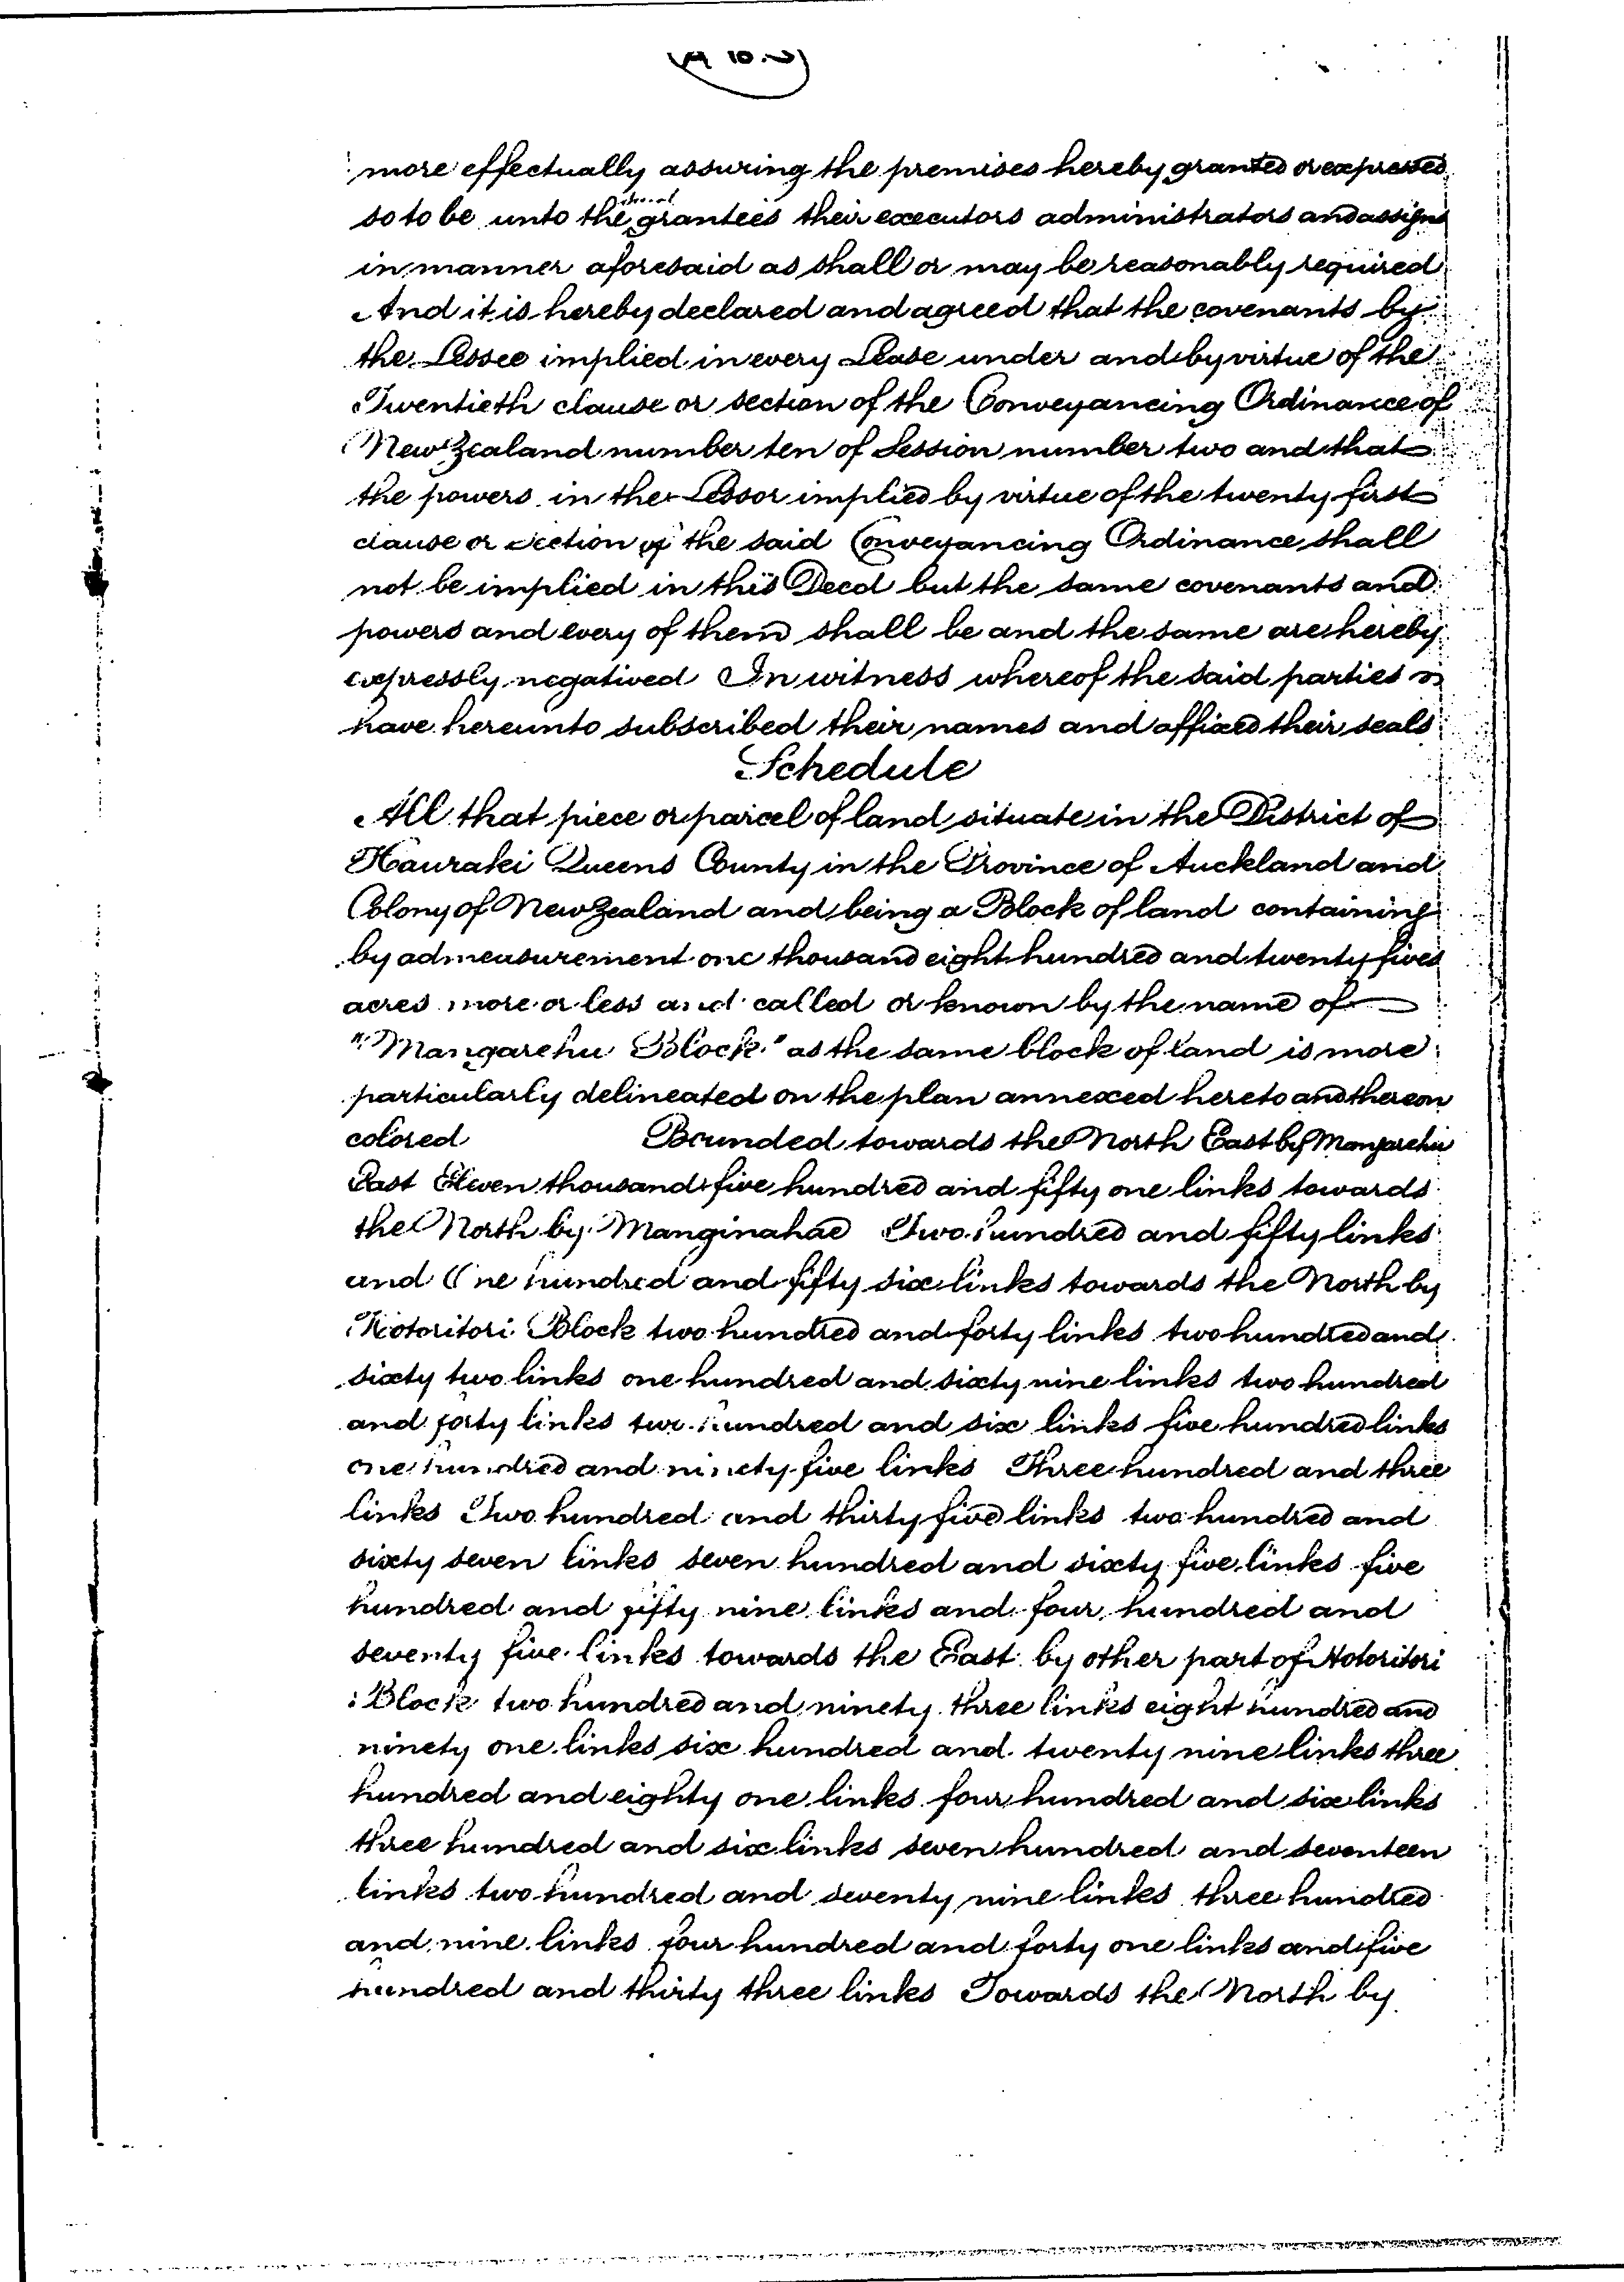 more effectually assuring the premises hereby granted or expressed
so to be unto the grantees their executors administrators and assigns
in manner aforesaid as shall or may be reasonably required
And it is hereby declared and agreed that the covenants by
the Lessee implied in every Lease under and by virtue of the
Twentieth clause or section of the Conveyancing Ordinance of
New Zealand number ten of Session number two and that
the powers in the Lessor implied by virtue of the twenty first
clause or section of the said Conveyancing Ordinance shall
not be implied in this Deed but the same covenants and
powers and every of them shall be and the same are hereby
expressly negatived In witness whereof the said parties
have hereunto subscribed their names and affixed their seals
Schedule
All that piece or parcel of land situate in the District of
Hauraki Queens County in the Province of Auckland and
Colony of New Zealand and being a Block of land containing
by admeasurement one thousand eight hundred and twenty five
acres more or less and called or known by the name of
"Mangarehu Block" as the same block of land is more
particularly delineated on the plan annexed hereto and thereon
colored Bounded towards the North East by Mangarehu
East Eleven thousand five hundred and fifty one links towards
the North by Manginahae Two hundred and fifty links
and One hundred and fifty six links towards the North by
Hotoritori Block two hundred and forty links two hundred and
sixty two links one hundred and sixty nine links two hundred
and forty links two hundred and six links five hundred links
one hundred and ninety five links Three hundred and three
links Two hundred and thirty five links two hundred and
sixty seven links seven hundred and sixty five links five
hundred and fifty nine links and four hundred and
seventy five links towards the East by other part of Hotoritori
Block two hundred and ninety three links eight hundred and
ninety one links six hundred and twenty nine links three
hundred and eighty one links four hundred and six links
three hundred and six links seven hundred and seventeen
links two hundred and seventy nine links three hundred
and nine links four hundred and forty one links and five
hundred and thirty three links Towards the North by